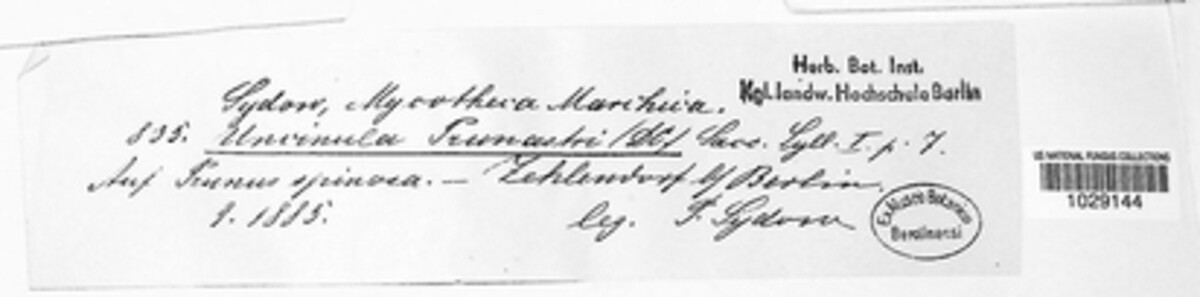 Herb. Bot. Inst.
Kgl. landw. Hochschule Berlin
Sydow, Mycotheca Marchica.
835. Uncinula Prunastri (DC) Sacc. Syll. I. p. 7.
Auf Prunus spinosa. — Zehlendorf b/ Berlin.
9. 1885. leg. P. Sydow
Ex Museo Botanico
Berolinensi
US NATIONAL FUNGUS COLLECTIONS
1029144